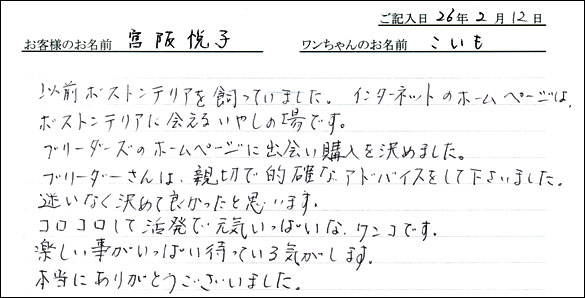 ご記入日 26年 2月 12日
お客様のお名前 宮阪悦子 ワンちゃんのお名前 こいも
以前ボストンテリアを飼っていました。インターネットのホームページは、
ボストンテリアに会えるいやしの場です。
ブリーダーズのホームページに出会い購入を決めました。
ブリーダーさんは、親切で的確なアドバイスをして下さいました。
迷いなく決めて良かったと思います。
コロコロして活発で元気いっぱいな、ワンコです。
楽しい事がいっぱい待っている気がします。
本当にありがとうございました。